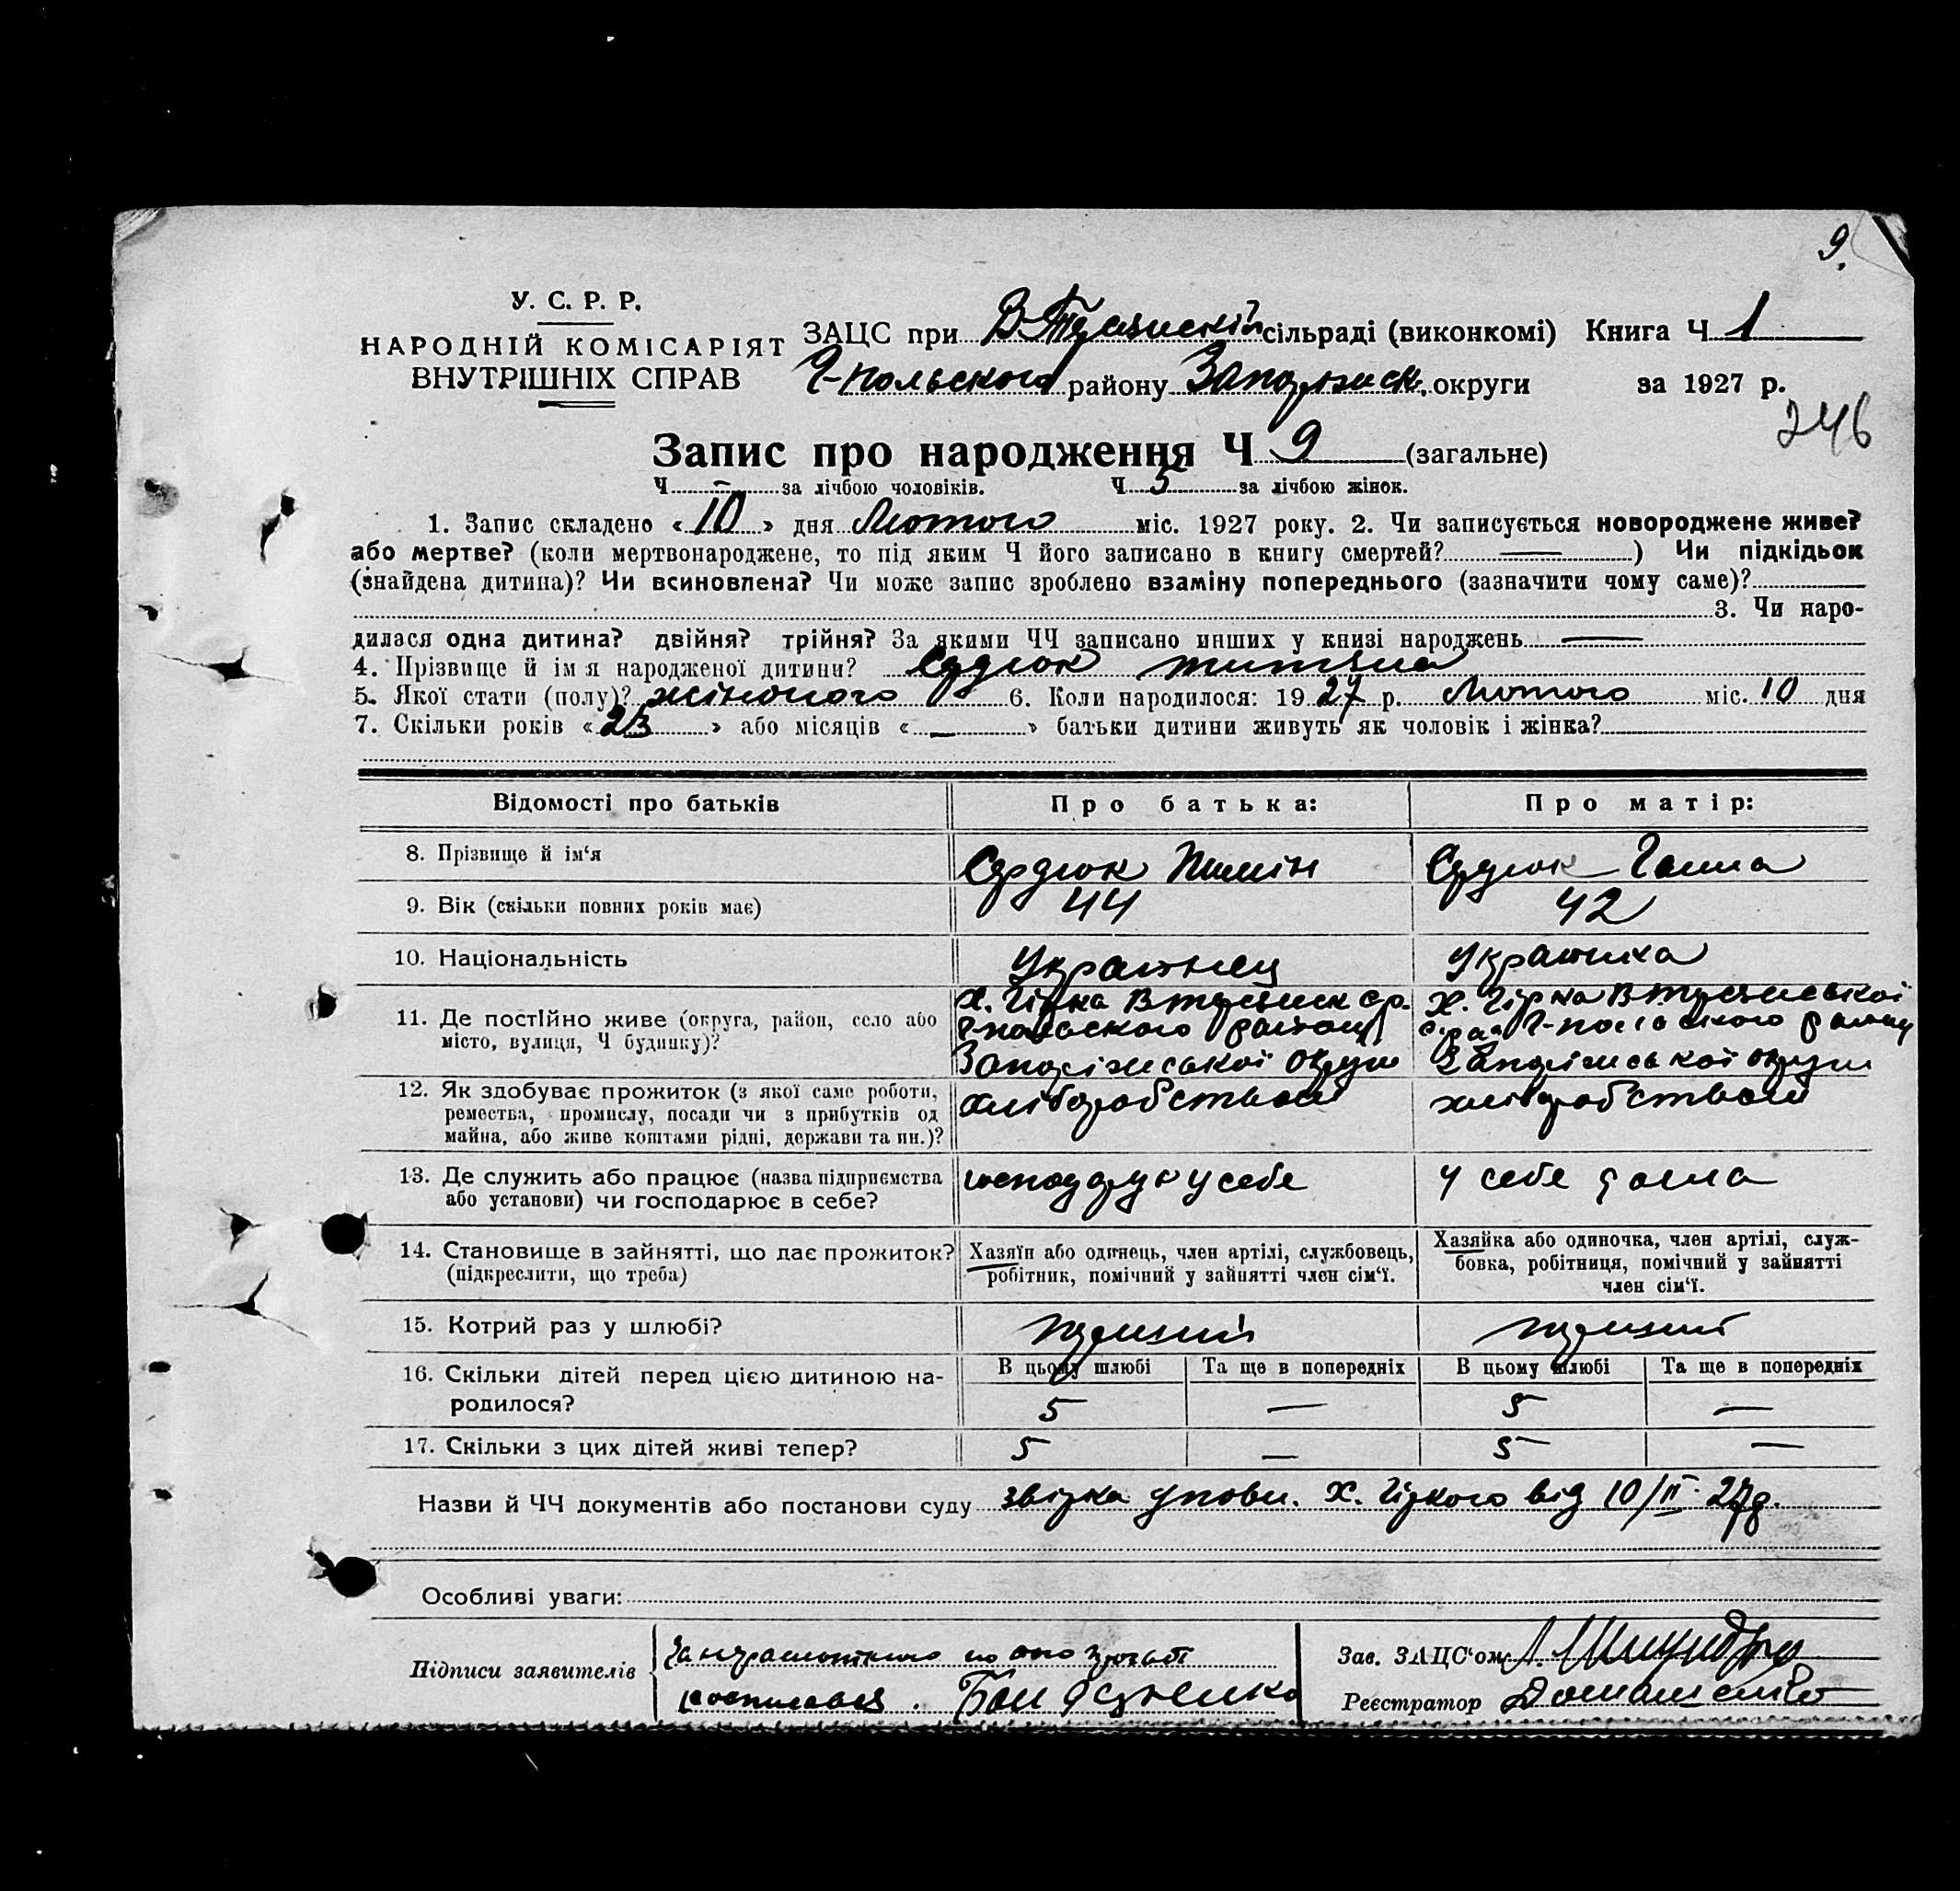 9.
У. С. Р. Р.
НАРОДНІЙ КОМІСАРІЯТ
ВНУТРІШНІХ СПРАВ
ЗАЦС при сільраді (виконкомі) Книга Ч 1
Г-польського району округи за 1927 р.
246
Запис про народження Ч 9 (загальне)
Ч – за лічбою чоловіків. Ч 5 за лічбою жінок.
1. Запис складено « 10 » дня Лютого міс. 1927 року. 2. Чи записується новороджене живе?
або мертве? (коли мертвонароджене, то під яким Ч його записано в книгу смертей? — ) Чи підкідьок
(знайдена дитина)? Чи всиновлена? Чи може запис зроблено взаміну попереднього (зазначити чому саме)?
3. Чи наро-
дилася одна дитина? двійня? трійня? За якими ЧЧ записано инших у книзі народжень —
4. Прізвище й ім я народженої дитини? Сердюк
5. Якої стати (полу)? жіночого 6. Коли народилося: 19 27 р. Лютого міс. 10 дня
7. Скільки років « 23 » або місяців « – » батьки дитини живуть як чоловік і жінка?
Відомості про батьків Про батька: Про матір:
8. Прізвище й ім'я Сердюк Пимін Сердюк Ганна
9. Вік (скільки повних років має) 44 42
10. Національність Украінец Украінка
11. Де постійно живе (округа, район, село або
місто, вулиця, Ч будинку)?
х. Гірка
Г-польського району
Запоріжської округи
х. Гірка
Г-польского району
Запоріжської округи
12. Як здобуває прожиток (з якої саме роботи,
ремества, промислу, посади чи з прибутків од
майна, або живе коштами рідні, держави та ин.)?
хліборобством хліборобством
13. Де служить або працює (назва підприємства
або установи) чи господарює в себе?
господарує у себе у себе дома
14. Становище в зайнятті, що дає прожиток?
(підкреслити, що треба)
Хазяїн або одинець, член артілі, службовець,
робітник, помічний у зайнятті член сім'ї.
Хазяйка або одиночка, член артілі, служ-
бовка, робітниця, помічний у зайнятті
член сім'ї.
15. Котрий раз у шлюбі? перший перший
16. Скільки дітей перед цією дитиною на-
родилося?
В цьому шлюбі Та ще в попередніх В цьому шлюбі Та ще в попередніх
5 — 5 —
17. Скільки з цих дітей живі тепер? 5 — 5 —
Назви й ЧЧ документів або постанови суду х. від 10/II 27р.
Особливі уваги:
Підписи заявителів
Зав. ЗАЦС'ом
Реєстратор